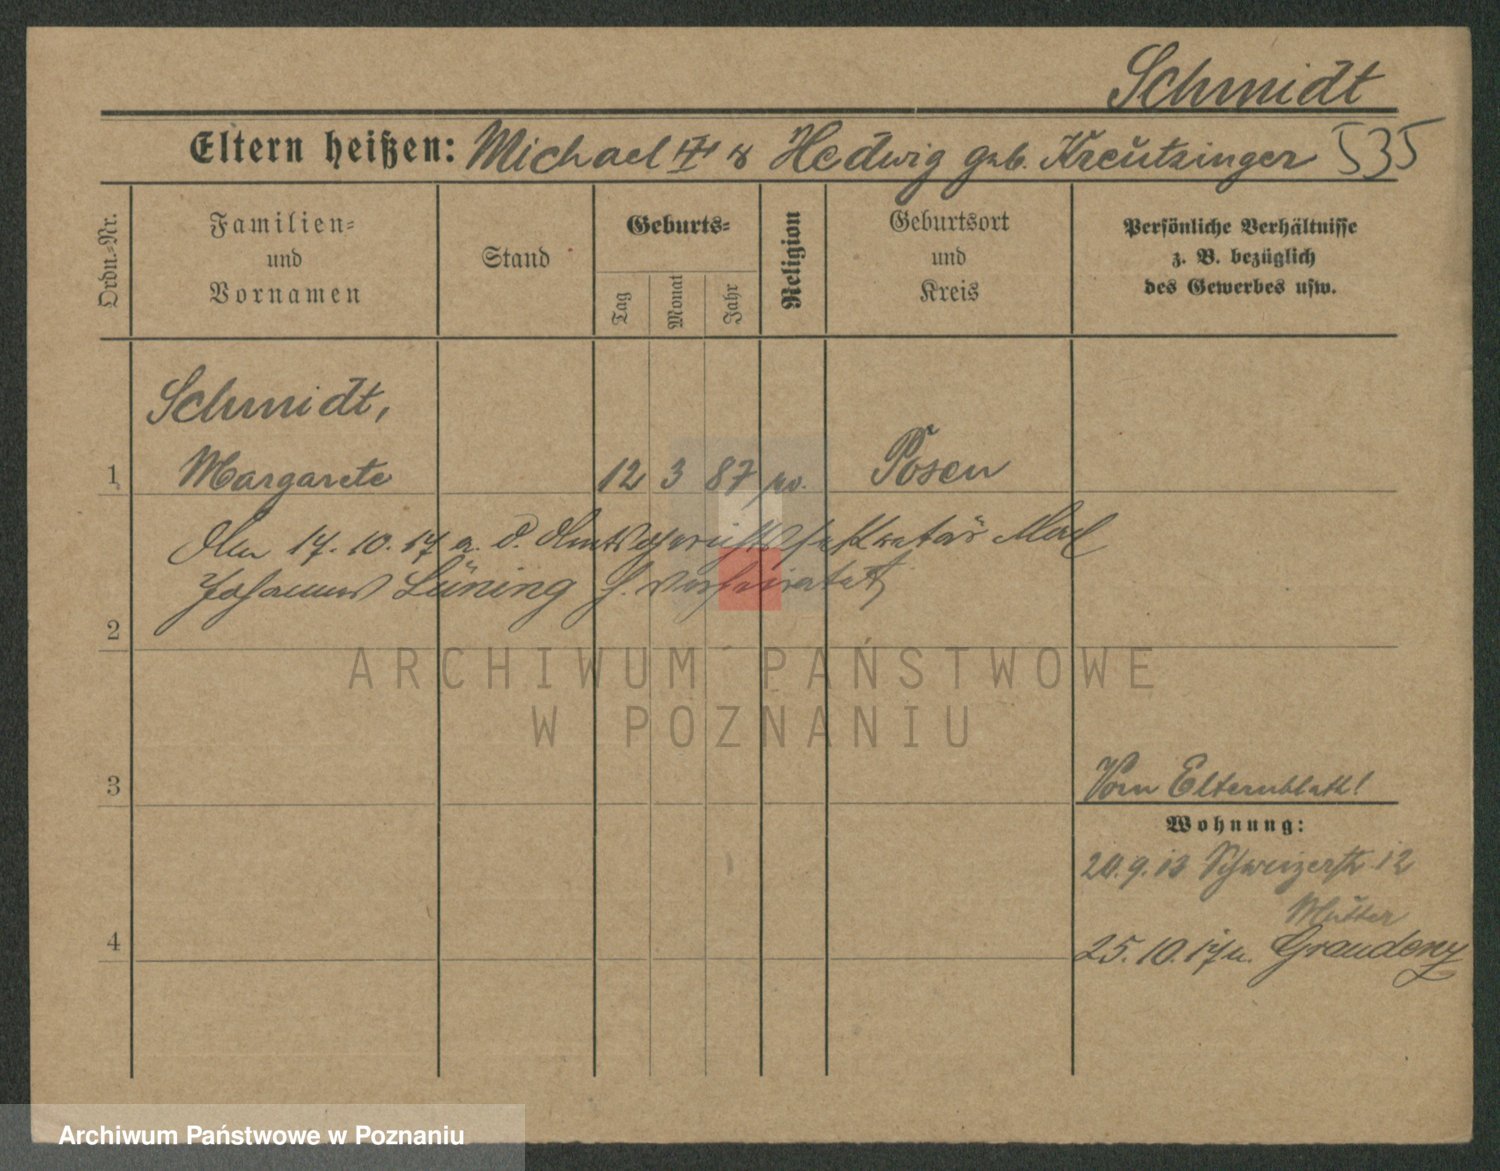 Schmidt
Eltern heißen: Michael ‡ & Hedwig geb. Kreutzinger 535
Ordn.-Nr.
Familien-
und
Vornamen
Stand
Geburts-
Tag
Monat
Jahr
Religion
Geburtsort
und
Kreis
Persönliche Verhältnisse
z. B. bezüglich
des Gewerbes usw.
Schmidt,
1 Margarete 12 3 87 Posen
17.10.17 a. d. Amtsgerichtssekretär
Johannes Lüning h. verheiratet
2
ARCHIWUM PAŃSTWOWE
W POZNANIU
3 Vom Elternblatt!
Wohnung:
20.9.13 Schweizerstr. 12
Mutter
4 25.10.17 n. Graudenz
Archiwum Państwowe w Poznaniu